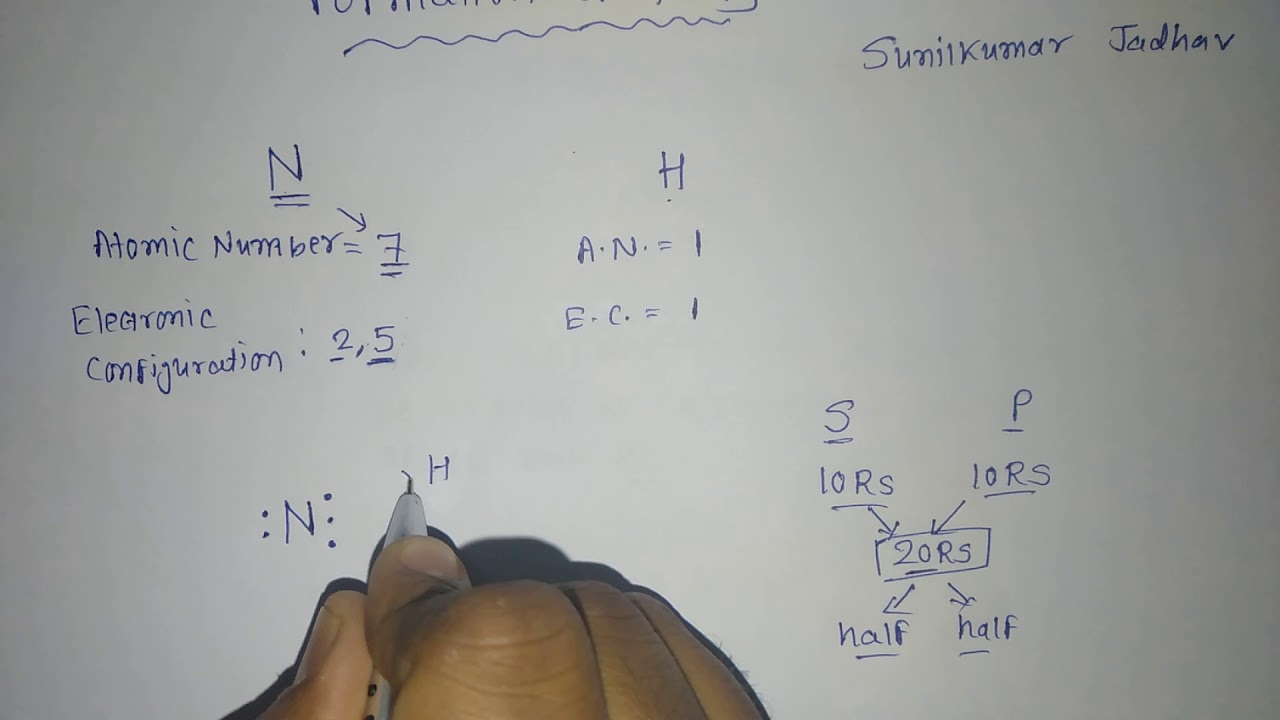 Sunilkumar Jadhav
N
Atomic Number = 7
Electronic
Configuration : 2, 5
H
A.N. = 1
E.C. = 1
:N: H
S P
10RS 10RS
20RS
half half